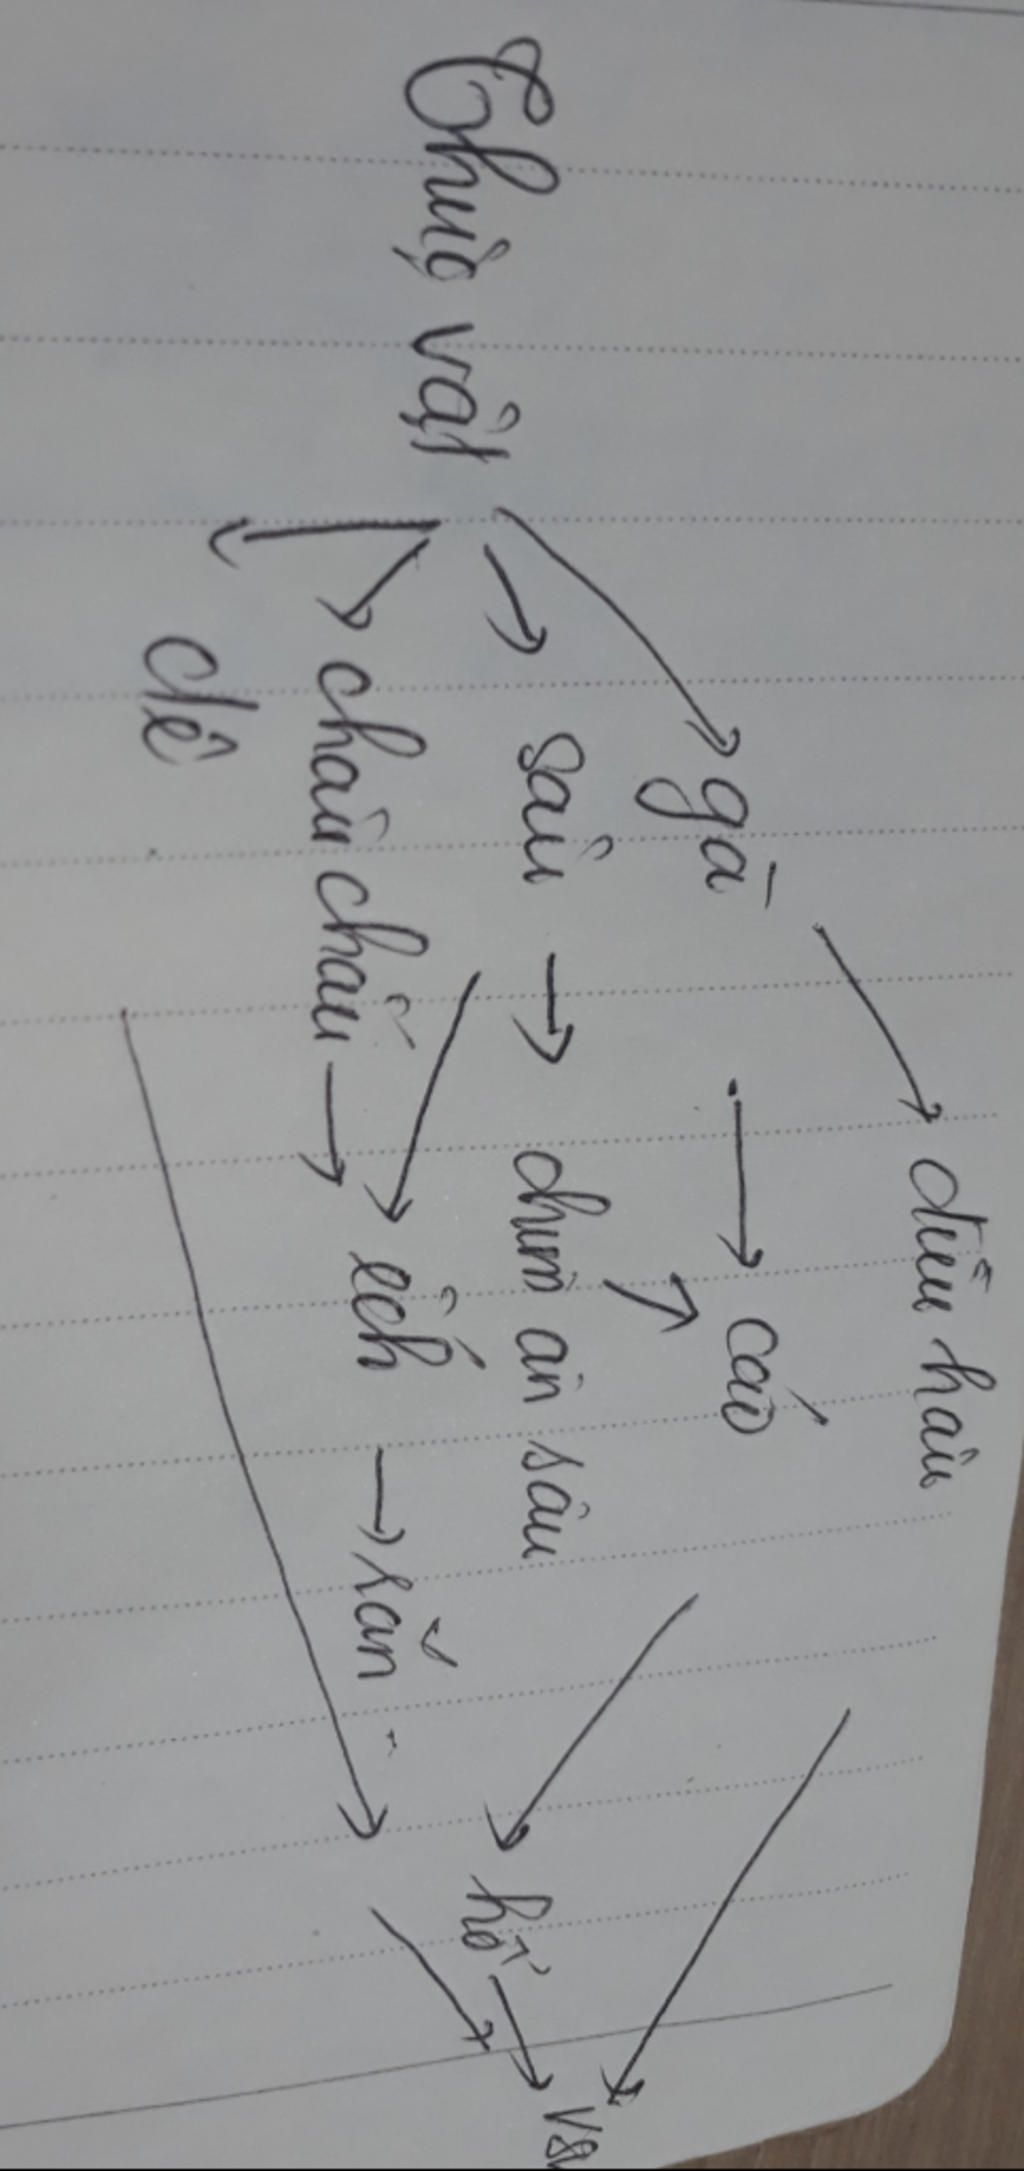 diều hâu
gà
cáo
sâu
chim ăn sâu
Thực vật
hổ
châu chấu
ếch
rắn
dê